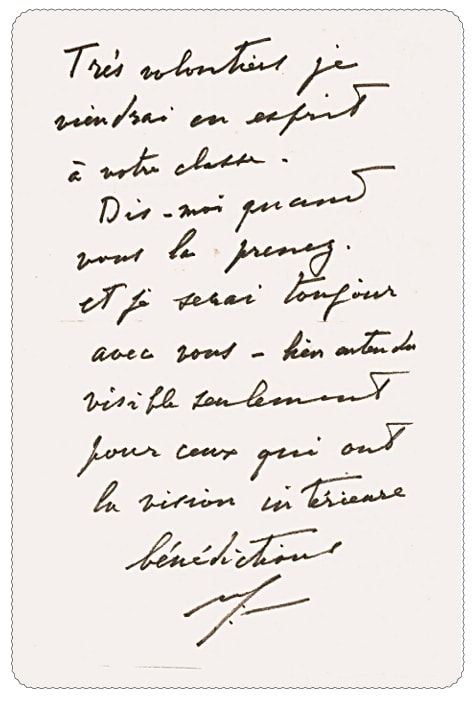 Très volontiers je
viendrai en esprit
à votre classe.
Dis-moi quand
vous la prenez.
et je serai toujour
avec vous - bien entendu
visible seulement
pour ceux qui ont
la vision intérieure
bénédictions